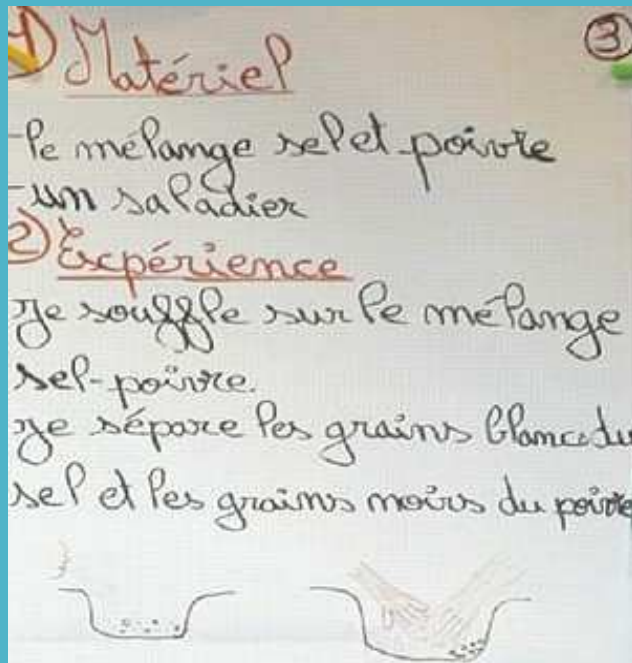 1) Matériel
3
-le mélange sel et poivre
-un saladier
2) Expérience
Je souffle sur le mélange
sel-poivre.
Je sépare les grains blancs du
sel et les grains noirs du poivre